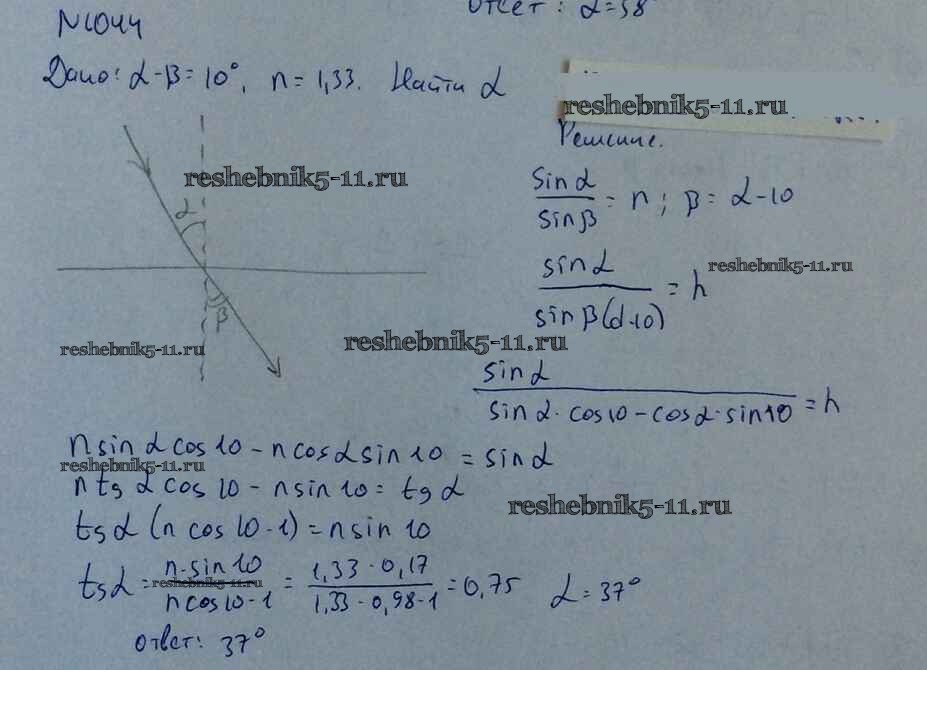 Ответ: α=58
N1044
Дано: α-β=10°, n=1,33. Найти α
reshebnik5-11.ru
Решение.
reshebnik5-11.ru
α
β
sinα/sinβ = n; β = α-10
sinα/sinβ(α-10) = n
reshebnik5-11.ru
reshebnik5-11.ru
reshebnik5-11.ru
sinα/(sinα·cos10-cosα·sin10) = n
n sinα cos10 - n cosα sin10 = sinα
reshebnik5-11.ru
n tgα cos10 - n sin10 = tgα
reshebnik5-11.ru
tgα (n cos10-1) = n sin10
tgα = n·sin10/(n cos10-1) = 1,33·0,17/(1,33·0,98-1) = 0,75 α=37°
reshebnik5-11.ru
ответ: 37°